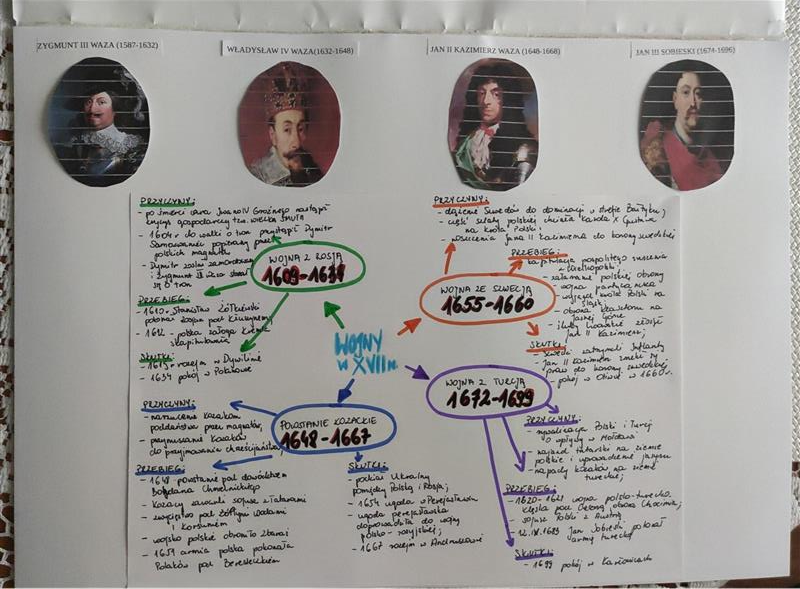 ZYGMUNT III WAZA (1587-1632)
WŁADYSŁAW IV WAZA(1632-1648)
JAN II KAZIMIERZ WAZA (1648-1668)
JAN III SOBIESKI (1674-1696)
WOJNY
W XVII w
WOJNA Z ROSJĄ
1609-1634
PRZYCZYNY:
- po śmierci cara Iwana IV Groźnego nastąpił
kryzys gospodarczy tzw. WIELKA SMUTA
- 1604r do walki o tron przystąpił Dymitr
Samozwaniec popierany przez
polskich magnatów
- Dymitr został zamordowany
i Zygmunt III
się o tron
PRZEBIEG:
- 1610r. Stanisław Żółkiewski
pokonał wojska pod Kłuszynem;
- 1612 - polska załoga Kremla
skapitulowała
SKUTKI:
- rozejm w Dywilinie
- 1634 pokój w Polanowie
WOJNA ZE SZWECJĄ
1655-1660
PRZYCZYNY:
- dążenie Szwedów do dominacji w strefie Bałtyku;
- część szlachty polskiej chciała Karola X Gustawa
na króla Polski;
- roszczenia Jana II Kazimierza do korony szwedzkiej
PRZEBIEG:
- kapitulacja pospolitego ruszenia
w Wielkopolsce;
- załamanie polskiej obrony
- wojna partyzancka
- wyjazd króla Polski na
Śląsk;
- obrona klasztoru na
Jasnej Górze
- śluby lwowskie złożył
Jan II Kazimierz;
SKUTKI:
- Szwedzi zatrzymali Inflanty
- Jan II Kazimierz zrzekł się
praw do korony szwedzkiej
- pokój w Oliwie w 1660r.
POWSTANIE KOZACKIE
1648-1667
PRZYCZYNY:
- narzucenie kozakom
poddaństwa przez magnatów;
- przymuszanie kozaków
do przyjmowania chrześcijaństwa;
PRZEBIEG:
- 1648 powstanie pod dowództwem
Bohdana Chmielnickiego
- Kozacy zawarli sojusz z Tatarami
- zwycięstwo pod Żółtymi Wodami
i Korsuniem
- wojsko polskie obroniło Zbaraż
- 1651 armia polska pokonała
Polaków pod Beresteczkiem
SKUTKI:
- podział Ukrainy
pomiędzy Polską i Rosją;
- 1654 ugoda w Perejasławiu
- ugoda perejasławska
doprowadziła do wojny
polsko - rosyjskiej;
- 1667 rozejm w Andruszowie
WOJNA Z TURCJĄ
1672-1699
PRZYCZYNY:
- rywalizacja Polski i Turcji
o wpływy w Mołdawii
- najazd tatarski na ziemie
polskie i uprowadzenie jasyru
- napady kozaków na ziemie
tureckie;
PRZEBIEG:
- 1620-1621 wojna polsko-turecka.
Klęska pod Cecorą, obrona Chocimia;
- sojusz Polski z Austrią
- 12.IX.1683 Jan Sobieski pokonał
armię turecką
SKUTKI:
- 1699 pokój w Karłowicach